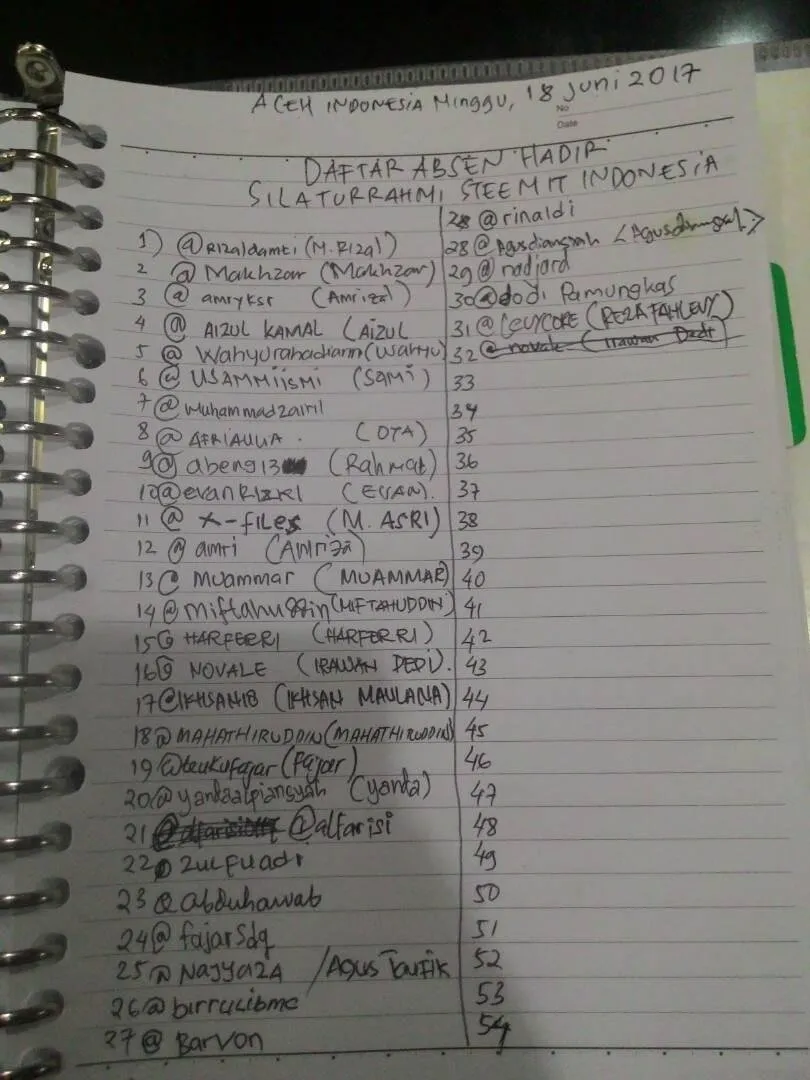 ACEH INDONESIA Minggu, 18 Juni 2017
No
Date
DAFTAR ABSEN HADIR
SILATURRAHMI STEEMIT INDONESIA
1) @Rizaldamti (M. Rizal)
2 @ Makhzar (Makhzar)
3 @ amryksr (Amrizal)
4 @ AIZUL KAMAL (AIZUL
5 @ Wahyurahadiann (WAHYU)
6 @ USAMMiiSMi (SAMi)
7 @ Muhammadzairil
8 @ AFRIAULIA. (OTA)
9 @ abeng13 (Rahmat)
10 @evanRizki (EVAN).
11 @ X-files (M. ASRI)
12 @ amri
13 @ Muammar (MUAMMAR)
14 @ Miftahuddin (MIFTAHUDDIN)
15 @ HARFERRI (HARFERRI)
16 @ NOVALE (IRAWAN DEDI).
17 @IKHSAN18 (IKHSAN MAULANA)
18 @ MAHATHIRUDDIN (MAHATHIRUDDIN)
19 @teukufajar (Fajar)
20 @ yandaalpiansyah (yanda)
21 @alfarisi
22 @ Zulfuadi
23 @ abduhawab
24 @ fajarsdq
25 @ NAJYA2A /Agus Taufik
26 @birrulibme
27 @ Barvon
28 @rinaldi
28 @ Agusdiansyah
29 @ nadjord
30 @dodi Pamungkas
31 @ LEVYCORE (REZA FAHLEVY)
32 @ novale (Irawan Dedi)
33
34
35
36
37
38
39
40
41
42
43
44
45
46
47
48
49
50
51
52
53
54